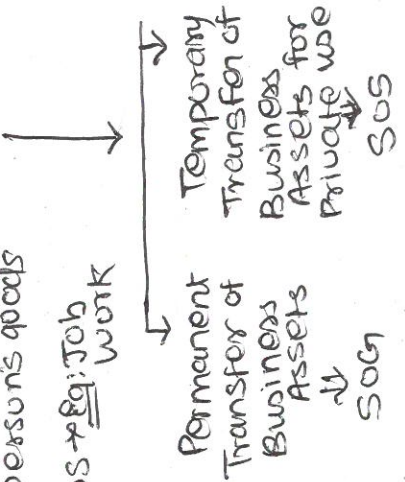 person's goods
S → Eg: Job
work
Permanent
Transfer of
Business
Assets
SOG
Temporary
Transfer of
Business
Assets for
Private use
SOS